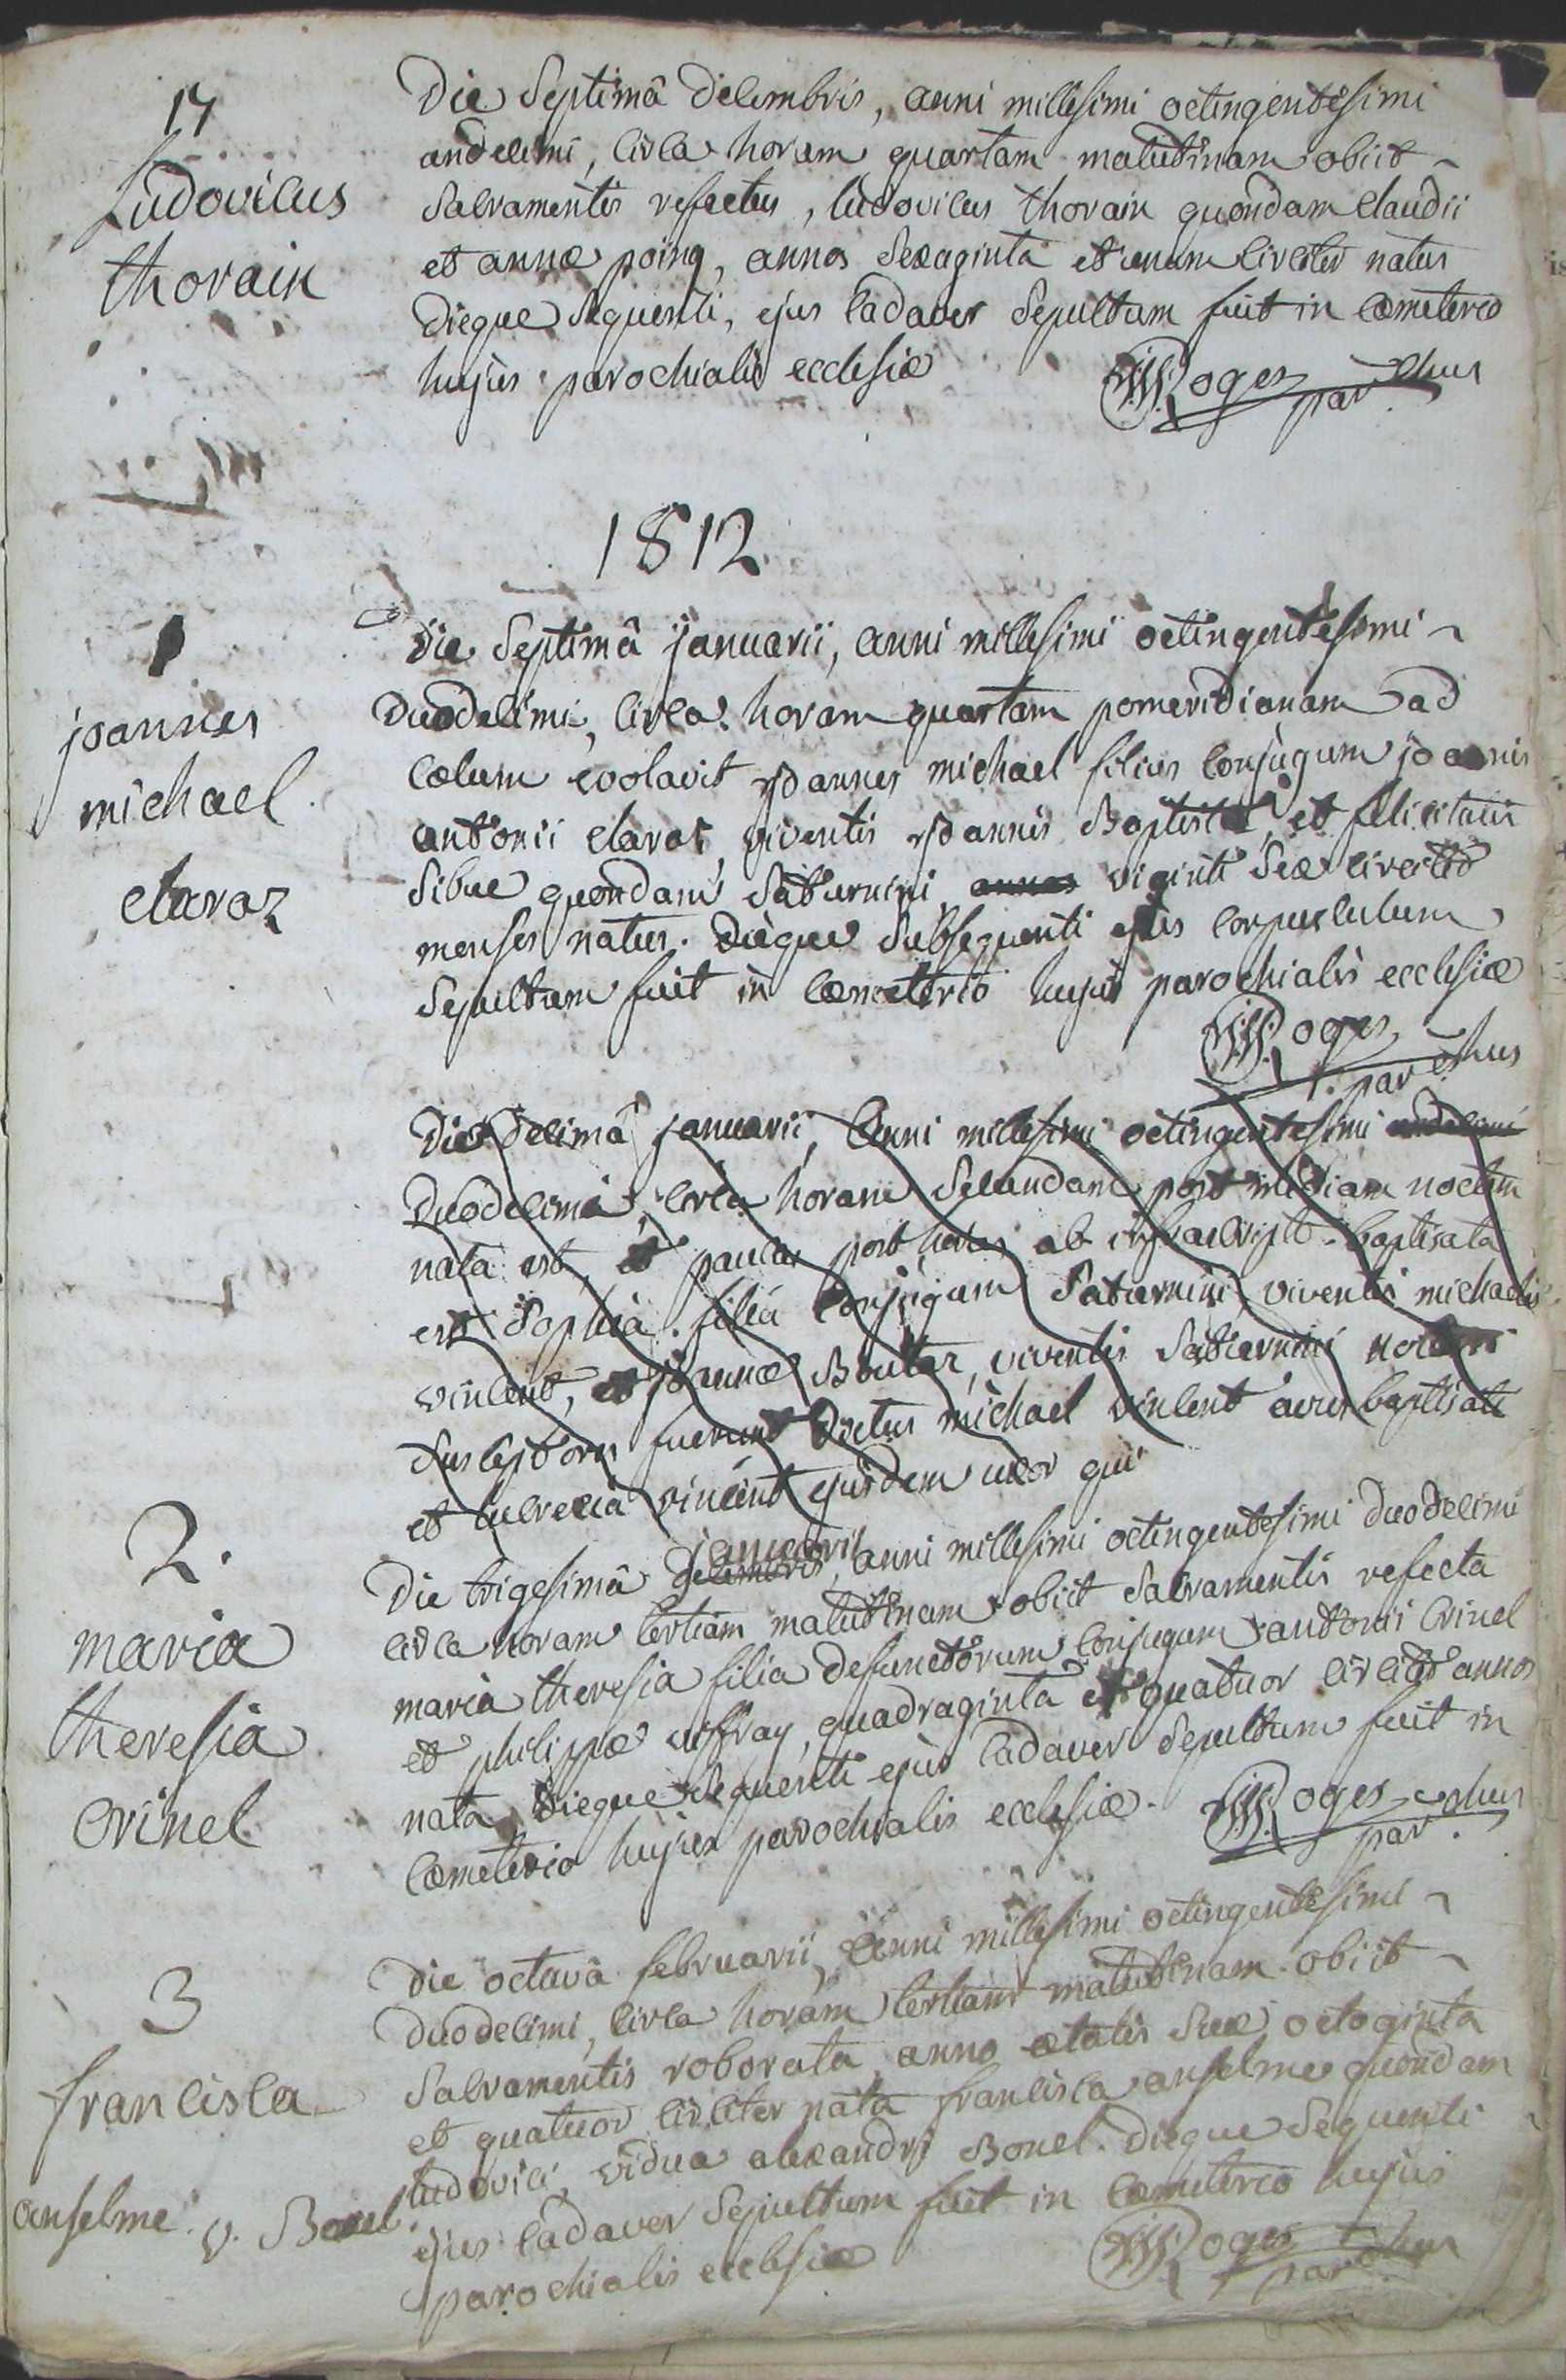 17
Ludovicus
thorain
Die Septimâ decembris, anni millesimi octingentesimi
undecimi, circa horam quartam matutinam obiit
Sacramentis refectus, ludovicus thorain quondam claudii
et annæ poing, annos Sexaginta et unum circiter natus
dieque Sequenti, ejus cadaver Sepultum fuit in cæmeterio
hujus parochialis ecclesiæ
Roges parochus
1812
1
joannes
michael
clavaz
Die Septimâ januarii, anni millesimi octingentesimi
duodecimi, circa horam quartam pomeridianam ad
cælum evolavit joannes michael filius conjugum joannis
antonii clavaz, viventis joannis Baptistæ, et felicitatis
Sibue quondam Saturnini, annos viginti Sex circiter
menses natus. dieque Subsequenti ejus corpusculum
Sepultum fuit in cæmeterio hujus parochialis ecclesiæ
Roges
parochus
Die decimâ januarii, anni millesimi octingentesimi undecimi
duodecimi, circa horam Secundam post mediam noctem
nata est, et paulas post horas ab infrascripto baptisata
est Sophia filia conjugum Saturnini viventis michaelis
vincent, et joannæ Boutaz, viventis Saturnini
Susceptores fuerunt dictus michael vincent avus baptisatæ
et lucrecia vincent ejusdem uxor qui
2.
maria
theresia
crinel
Die trigesimâ decembris januarii, anni millesimi octingentesimi duodecimi
circa horam tertiam matutinam obiit Sacramentis refecta
maria theresia filia defunctorum conjugum antonii crinel
et philippæ viffray, quadraginta et quatuor circiter annos
nata, dieque Sequenti ejus cadaver Sepultum fuit in
cæmeterio hujus parochialis ecclesiæ. Roges parochus
3
francisca
anselme v. Bonel
Die octavâ februarii, anni millesimi octingentesimi
duodecimi, circa horam tertiam matutinam obiit
Sacramentis roborata, anno ætatis Suæ octoginta
et quatuor circiter nata francisca anselme quondam
ludovici, vidua alexandri Bonel. dieque Sequenti
ejus cadaver Sepultum fuit in cæmeterio hujus
parochialis ecclesiæ
Roges parochus